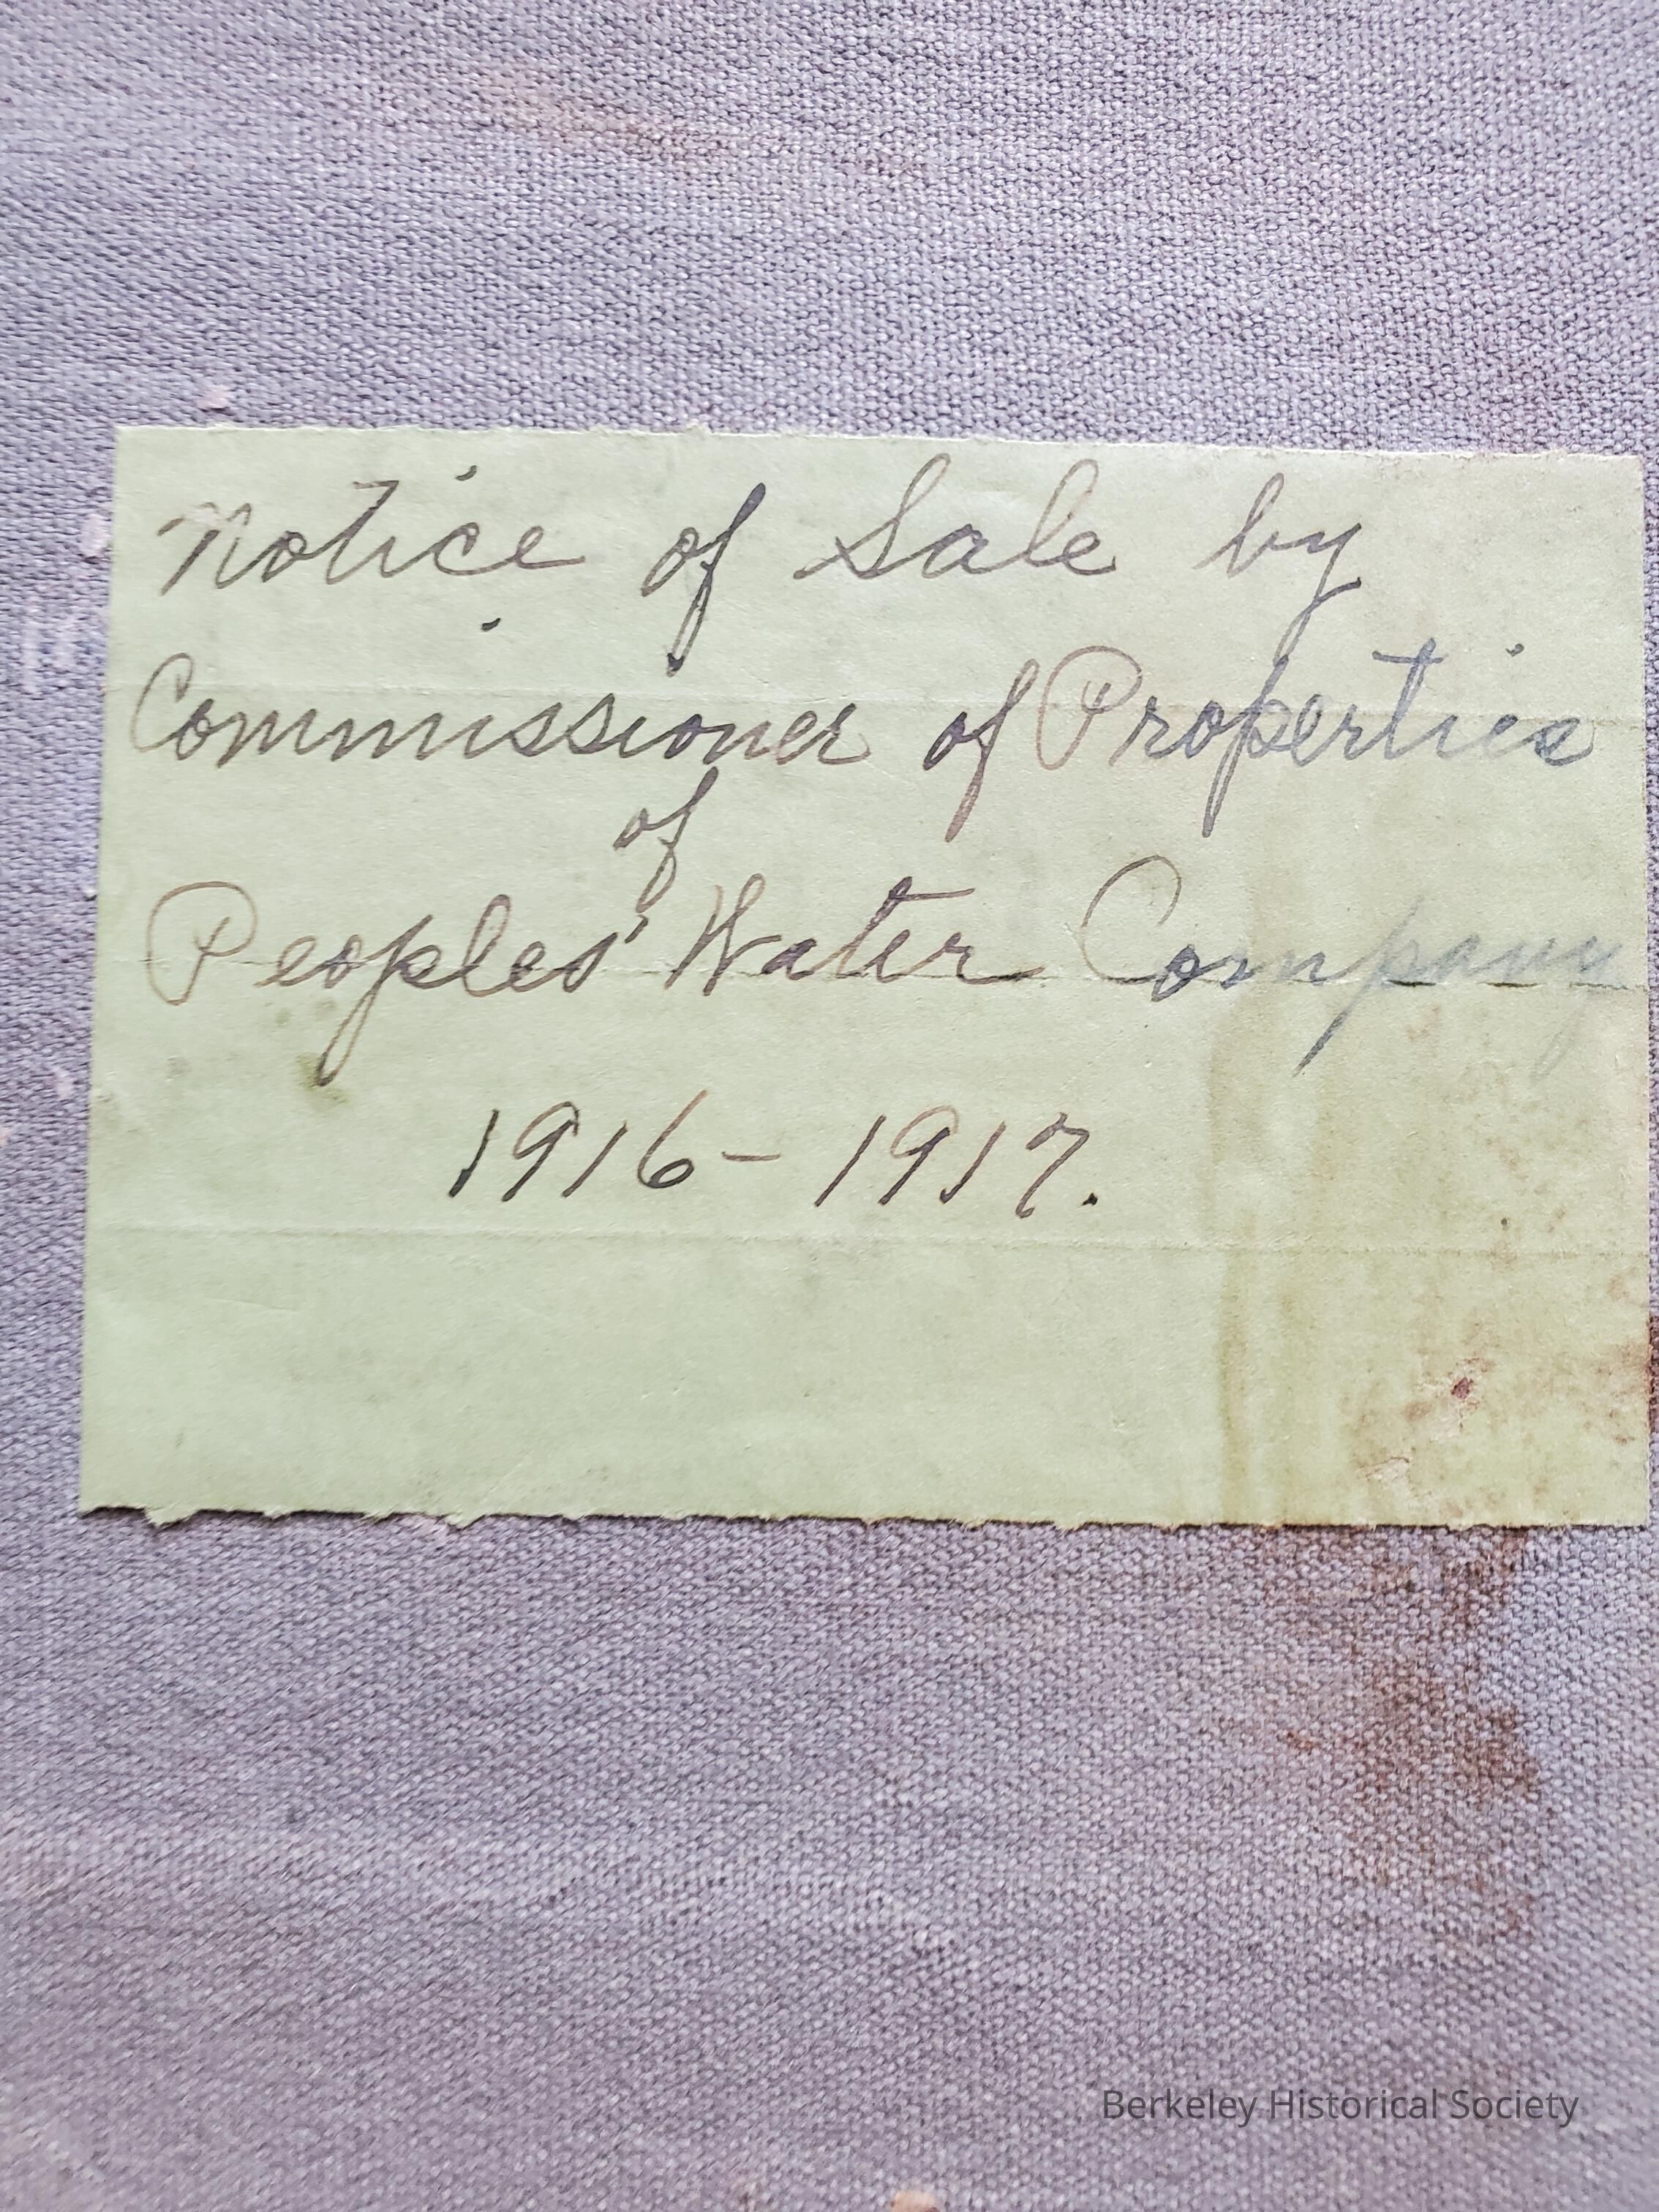 Notice of Sale by
Commissioner of Properties
of
Peoples' Water Company
1916 - 1917.
Berkeley Historical Society